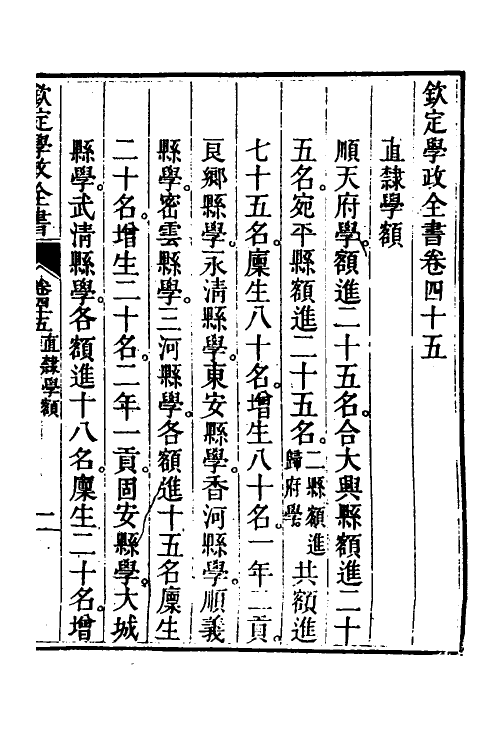 欽定學政全書卷四十五
直隸學額
順天府學額進二十五名合大興縣額進二十
五名宛平縣額進二十五名二縣額進歸府學共額進
七十五名廩生八十名增生八十名一年二貢
良鄉縣學永清縣學東安縣學香河縣學順義
縣學密雲縣學三河縣學各額進十五名廩生
二十名增生二十名二年一貢固安縣學大城
縣學武清縣學各額進十八名廩生二十名增
欽定學政全書 卷四十五 直隸學額 一